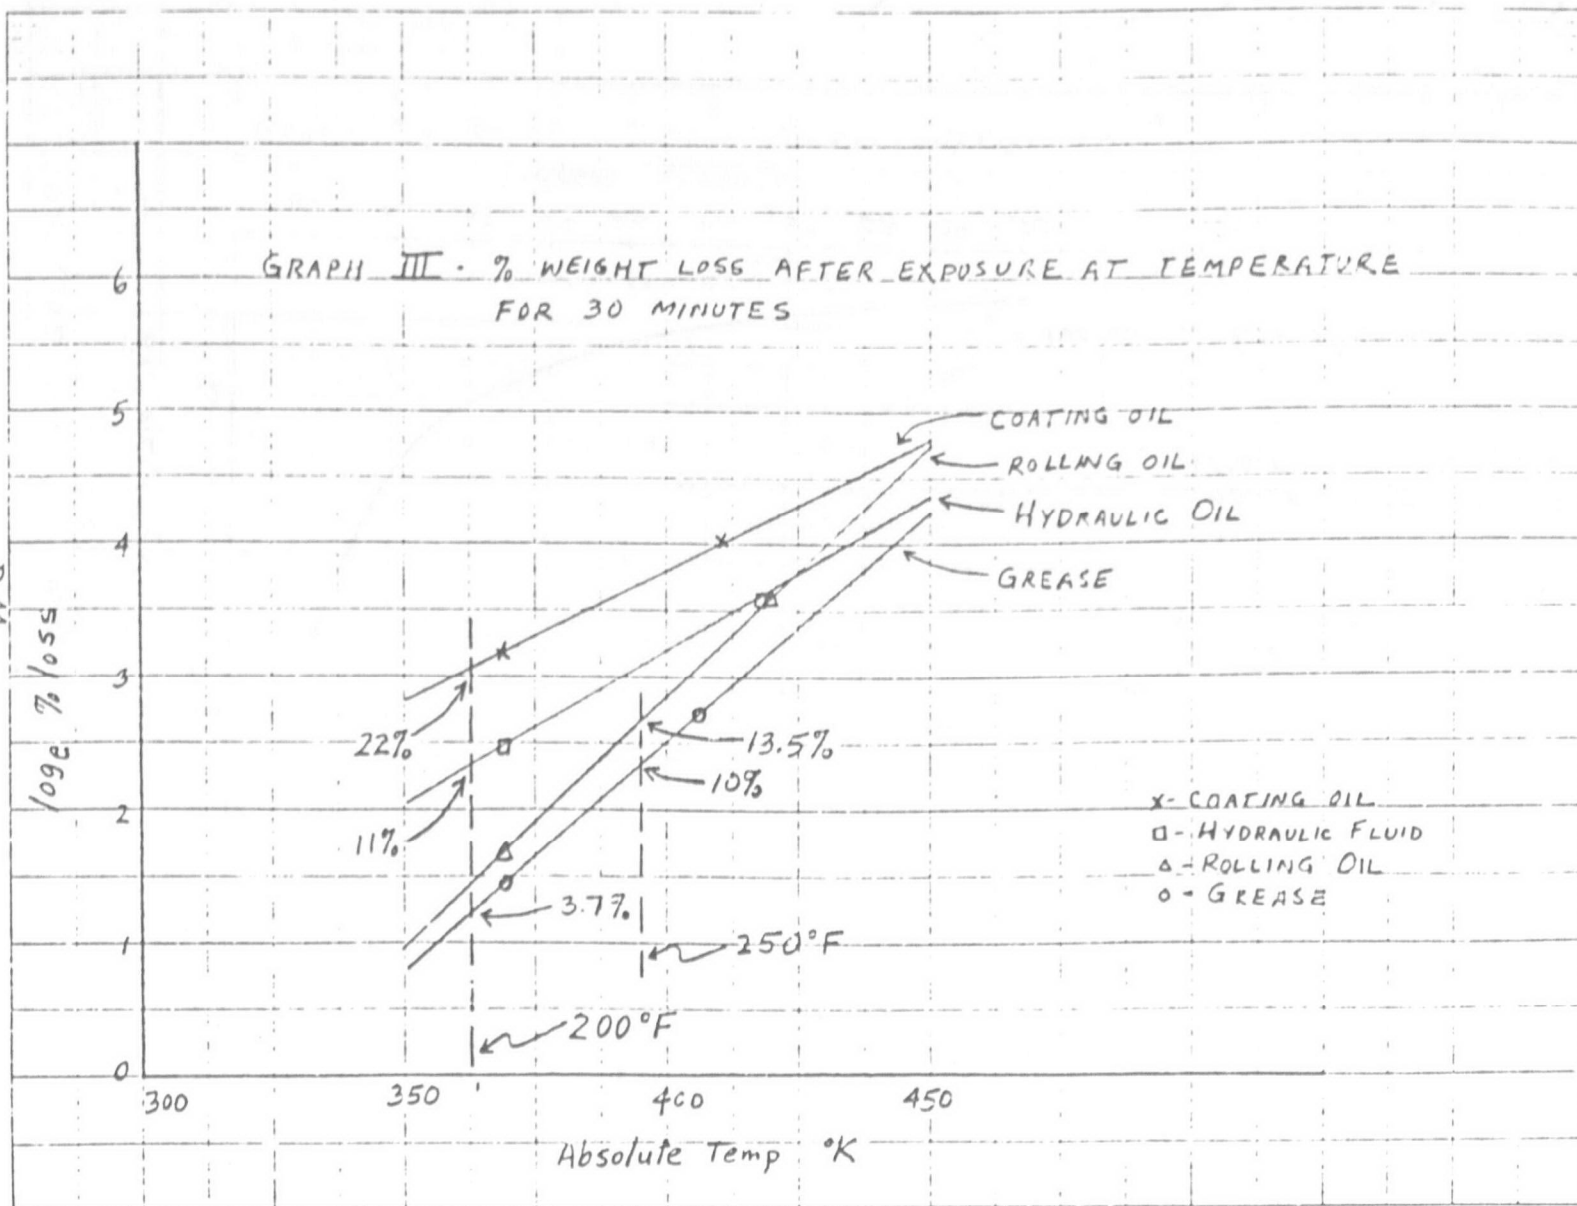 GRAPH III. % WEIGHT LOSS AFTER EXPOSURE AT TEMPERATURE
FOR 30 MINUTES
6
5
4
3
2
1
0
loge % loss
COATING OIL
ROLLING OIL
HYDRAULIC OIL
GREASE
22%
11%
13.5%
10%
3.7%
250°F
200°F
x - COATING OIL
□ - HYDRAULIC FLUID
△ - ROLLING OIL
o - GREASE
300
350
400
450
Absolute Temp °K